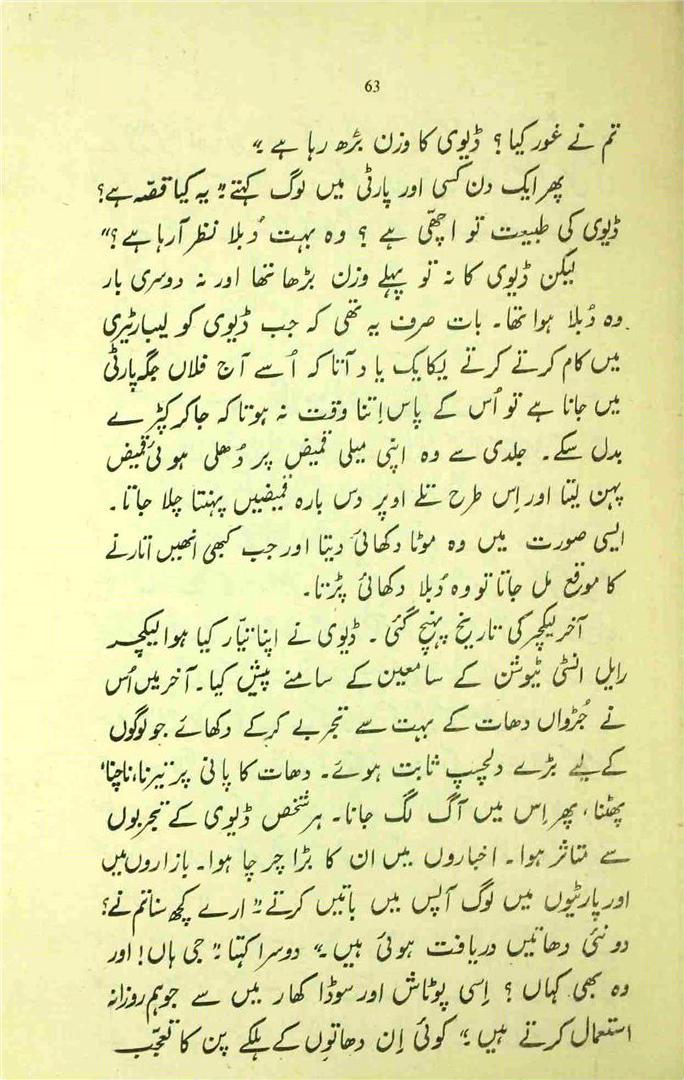 63
تم نے غور کیا؟ ڈیوی کا وزن بڑھ رہا ہے۔"
پھر ایک دن کسی اور پارٹی میں لوگ کہتے "یہ کیا قصّہ ہے؟
ڈیوی کی طبیعت تو اچھّی ہے؟ وہ بہت دُبلا نظر آ رہا ہے؟"
لیکن ڈیوی کا نہ تو پہلے وزن بڑھا تھا اور نہ دوسری بار
وہ دُبلا ہوا تھا۔ بات صرف یہ تھی کہ جب ڈیوی کو لیبارٹیری
میں کام کرتے کرتے یکایک یاد آتا کہ اُسے آج فلاں جگہ پارٹی
میں جانا ہے تو اُس کے پاس اِتنا وقت نہ ہوتا کہ جا کر کپڑے
بدل سکے۔ جلدی سے وہ اپنی میلی قمیض پر دُھلی ہوئی قمیض
پہن لیتا اور اِس طرح تلے اوپر دس بارہ قمیضیں پہنتا چلا جاتا۔
ایسی صورت میں وہ موٹا دکھائی دیتا اور جب کبھی انھیں اتارنے
کا موقع مل جاتا تو وہ دُبلا دکھائی پڑتا۔
آخر لیکچر کی تاریخ پہنچ گئی۔ ڈیوی نے اپنا تیّار کیا ہوا لیکچر
رایل انسٹی ٹیوشن کے سامعین کے سامنے پیش کیا۔ آخر میں اُس
نے جُڑواں دھات کے بہت سے تجربے کرکے دکھائے جو لوگوں
کے لیے بڑے دلچسپ ثابت ہوئے۔ دھات کا پانی پر تیرنا، ناچنا،
پھٹنا، پھر اِس میں آگ لگ جانا۔ ہر شخص ڈیوی کے تجربوں
سے متاثر ہوا۔ اخباروں میں ان کا بڑا چرچا ہوا۔ بازاروں میں
اور پارٹیوں میں لوگ آپس میں باتیں کرتے "ارے کچھ سنا تم نے؟
دو نئی دھاتیں دریافت ہوئی ہیں۔" دوسرا کہتا "جی ہاں! اور
وہ بھی کہاں؟ اِسی پوٹاش اور سوڈا کھار میں سے جو ہم روزانہ
استعمال کرتے ہیں۔" کوئی اِن دھاتوں کے ہلکے پن کا تعجّب